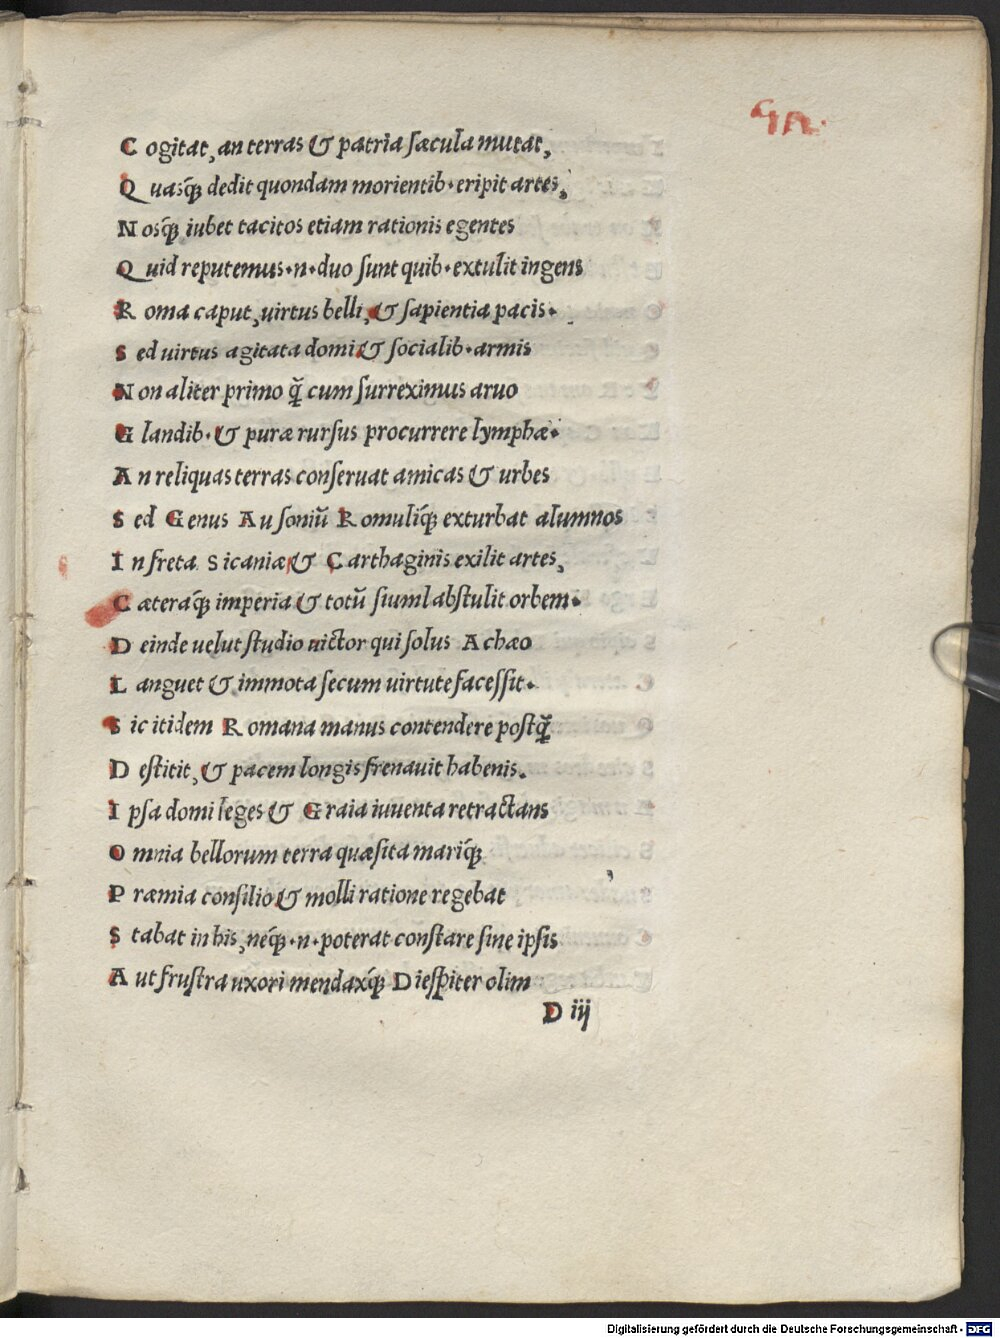 C ogitat, an terras & patria sæcula mutat,
Q uasq́ꝫ dedit quondam morientib· eripit artes,
N osq́ꝫ iubet tacitos etiam rationis egentes
Q uid reputemus·n·duo sunt quib·extulit ingens
R oma caput, uirtus belli, & sapientia pacis·
S ed uirtus agitata domi & socialib·armis
N on aliter primo q̃ cum surreximus aruo
G landib·& puræ rursus procurrere lymphæ·
A n reliquas terras conseruat amicas & urbes
S ed Genus Ausoniũ Romuliq́ꝫ exturbat alumnos
I n freta Sicaniæ & Carthaginis exilit artes,
C æteraq́ꝫ imperia & totũ siuml abstulit orbem·
D einde uelut studio uictor qui solus Achæo
L anguet & immota secum uirtute facessit·
S ic itidem Romana manus contendere postq̃
D estitit, & pacem longis frenauit habenis.
I psa domi leges & Graia iuuenta retractans
O mnia bellorum terra quæsita mariq́ꝫ
P ræmia consilio & molli ratione regebat
S tabat in his, neq́ꝫ·n·poterat constare sine ipsis
A ut frustra uxori mendaxq́ꝫ Diespiter olim
D iij
Digitalisierung gefördert durch die Deutsche Forschungsgemeinschaft - DFG